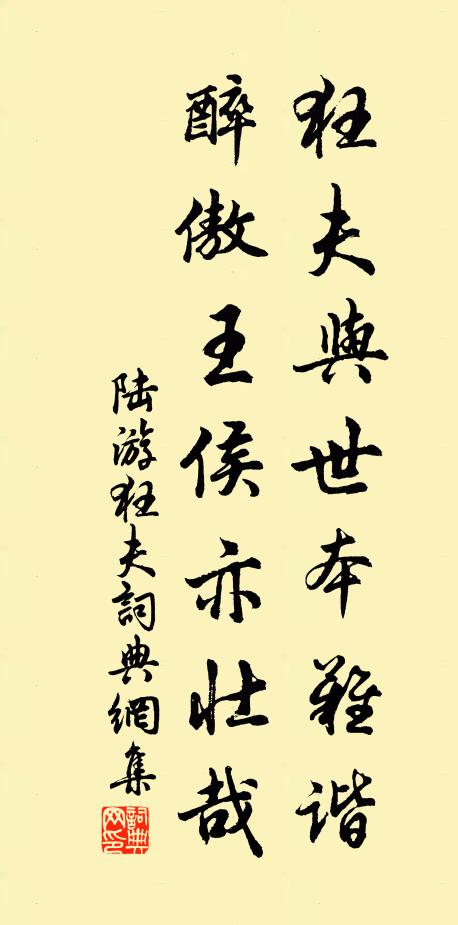 狂夫與世本難諧
醉傲王侯亦壯哉
陆游狂夫詞典網集
詞典
网印